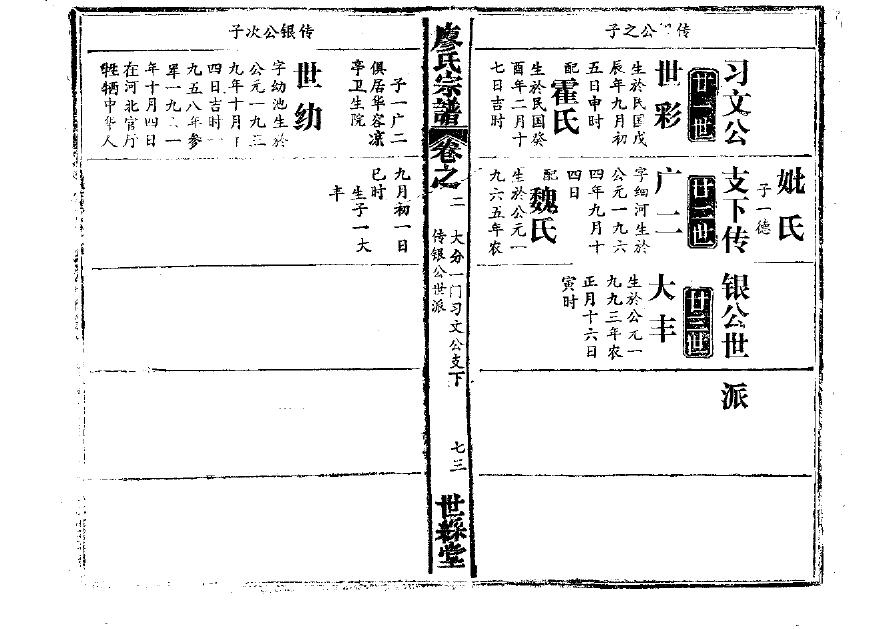 传银公之子
妣氏
子一德
习文公支下传银公世派
廿一世
世彩
生於民国戊
辰年九月初
五日申时
配霍氏
生於民国癸
酉年二月十
七日吉时
廿二世
广二
字细河生於
公元一九六
四年九月十
四日
配魏氏
生於公元一
九六五年农
廿三世
大丰
生於公元一
九九三年农
正月十六日
寅时
廖氏宗譜
卷之二
大分一门习文公支下
传银公世派
七三
世綵堂
传银公次子
子一广二
俱居华容凉
亭卫生院
世幼
字幼池生於
公元一九三
九年十月
四日吉时一
九五八年参
军一九一
年十月四日
在河北官厅
牺牺中华人
九月初一日
巳时
生子一大
丰